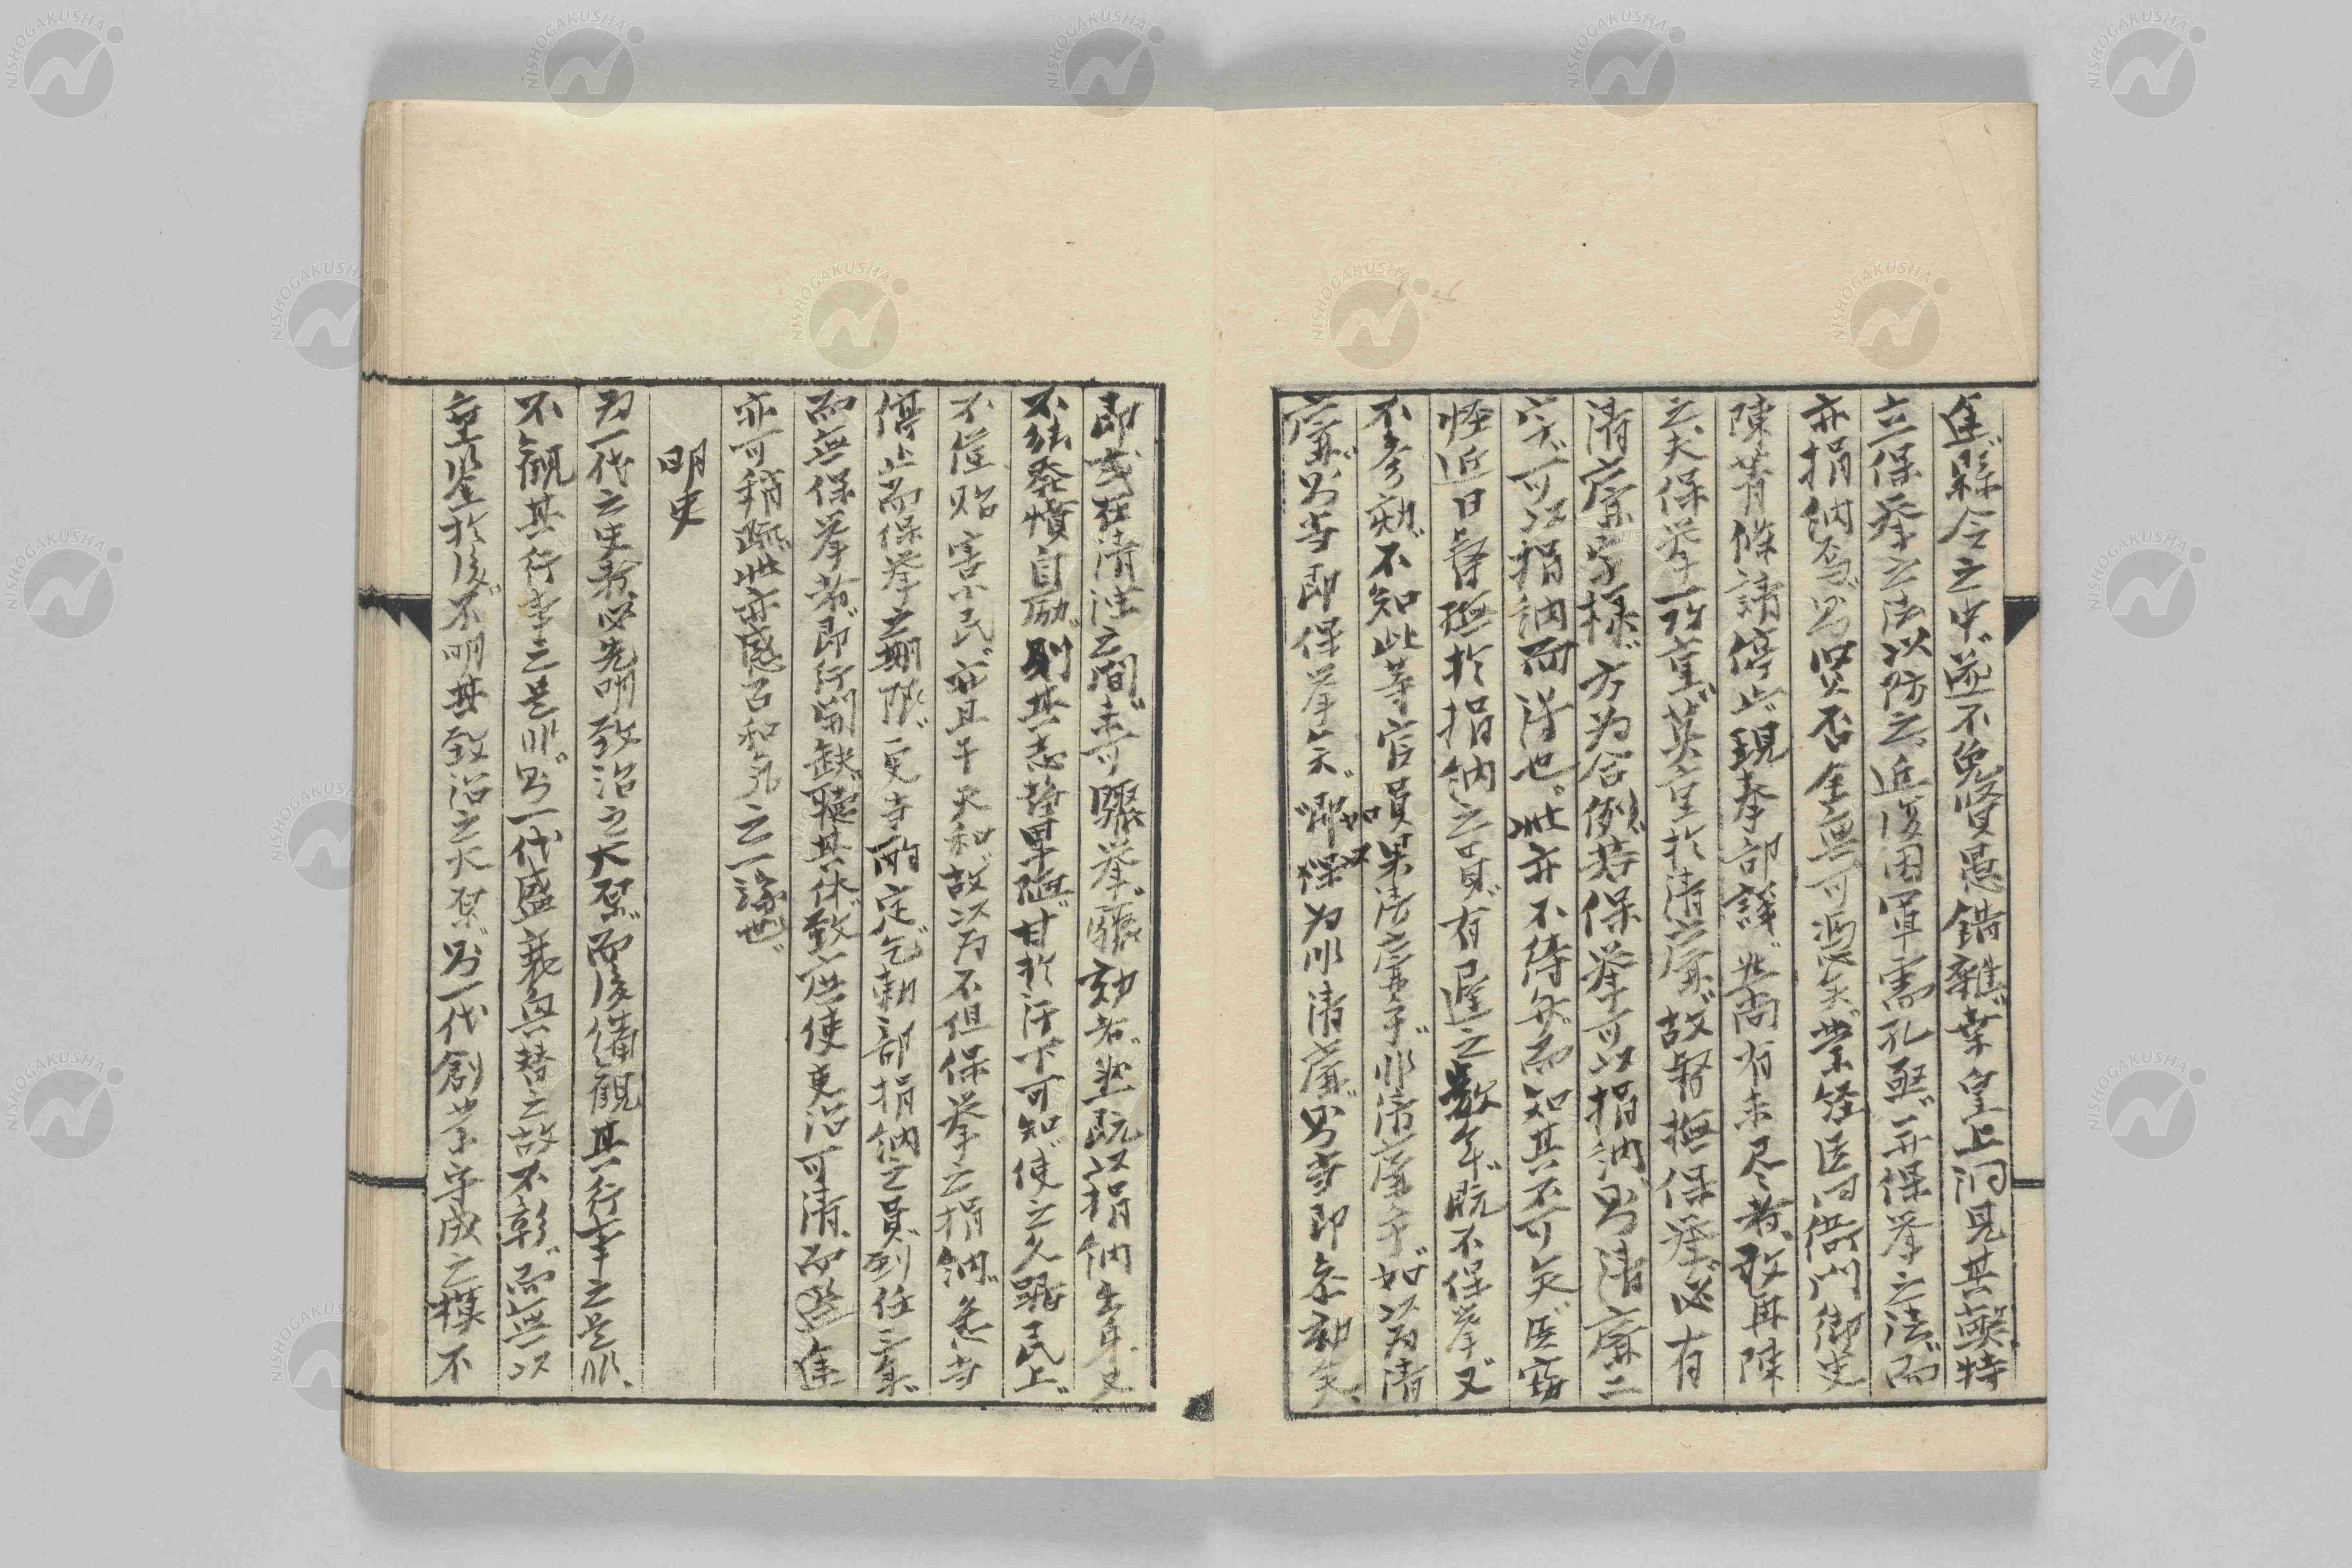 進縣令之中遂不免賢愚錯雜業皇上洞見其弊特
立保挙之法以防之近復因軍需孔亟并保挙之法而
亦捐納焉則賢否全無可憑矣業経臣同衙門御史
陳菁條請停止現奉部議然尚有未尽者敢再陳
之夫保挙一改重莫重於清廉故督撫保挙必有
清廉字様方為合例若保挙可以捐納則清廉二
字可以捐納而得也此亦不待弁而知其不可矣臣窃
怪近日督撫於捐納之員有遅之数年既不保挙又
不参劾不知此等官員果清廉乎非清廉乎如以為清
廉則当即保挙矣如不即保為非清廉則当即参劾矣
即或在清濁之間未可驟挙驟劾者然既以捐納出身又
不能発憤自励則其志望卑陋甘於汙下可知使之久踞民上
不僅貽害小民亦且干天和故以為不但保挙之捐納急当
停止而保挙之期限更当酌定乞勅部捐納之員到任三年
而無保挙者即行開缺聴其休致庶使吏治可清而選進
亦可稍疏此亦感召和気之一縁也
明史
為一代之史者必先明致治之大原而後備観其行事之是非
不観其行事之是非則一代盛衰興替之故不彰而無以
垂鑒於後不明其致治之大原則一代創業守成之模不